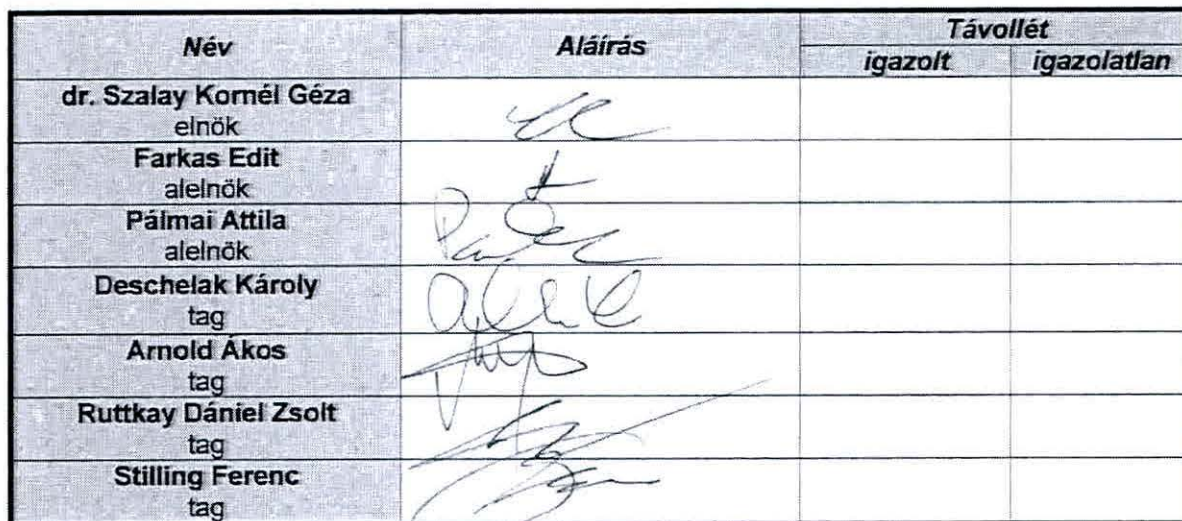 Név Aláírás Távollét
igazolt igazolatlan
dr. Szalay Kornél Géza
elnök
Farkas Edit
alelnök
Pálmai Attila
alelnök
Deschelak Károly
tag
Arnold Ákos
tag
Ruttkay Dániel Zsolt
tag
Stilling Ferenc
tag